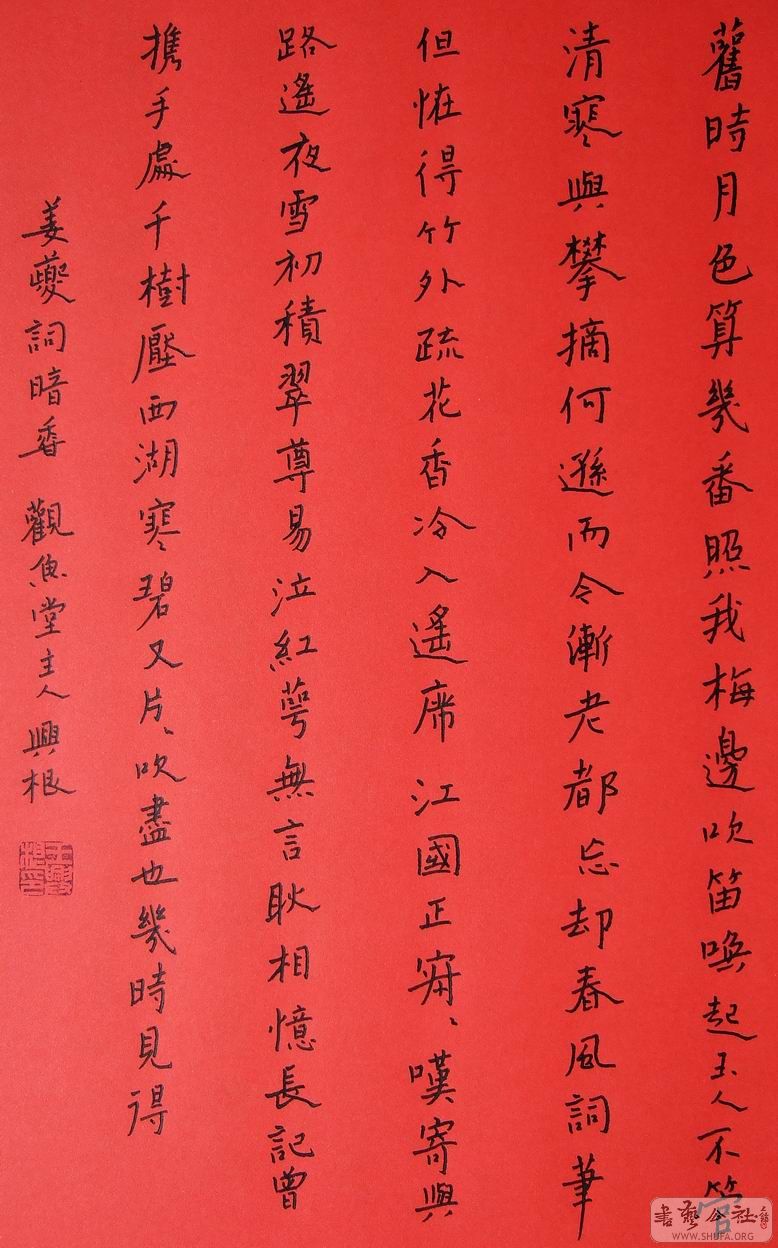 舊時月色算幾番照我梅邊吹笛喚起玉人不管
清寒與攀摘何遜而今漸老都忘却春風詞筆
但恠得竹外疏花香冷入遙席江國正寂、嘆寄與
路遙夜雪初積翠尊易泣紅萼無言耿相憶長記曾
携手處千樹壓西湖寒碧又片、吹盡也幾時見得
姜夔詞暗香 觀魚堂主人興根
王興根印
書藝公社
WWW.SHUFA.ORG